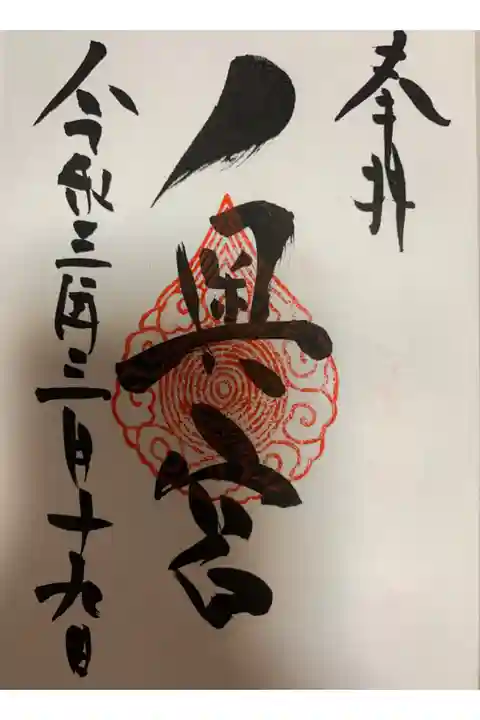 奉拝
奥宮
令和三年三月十九日